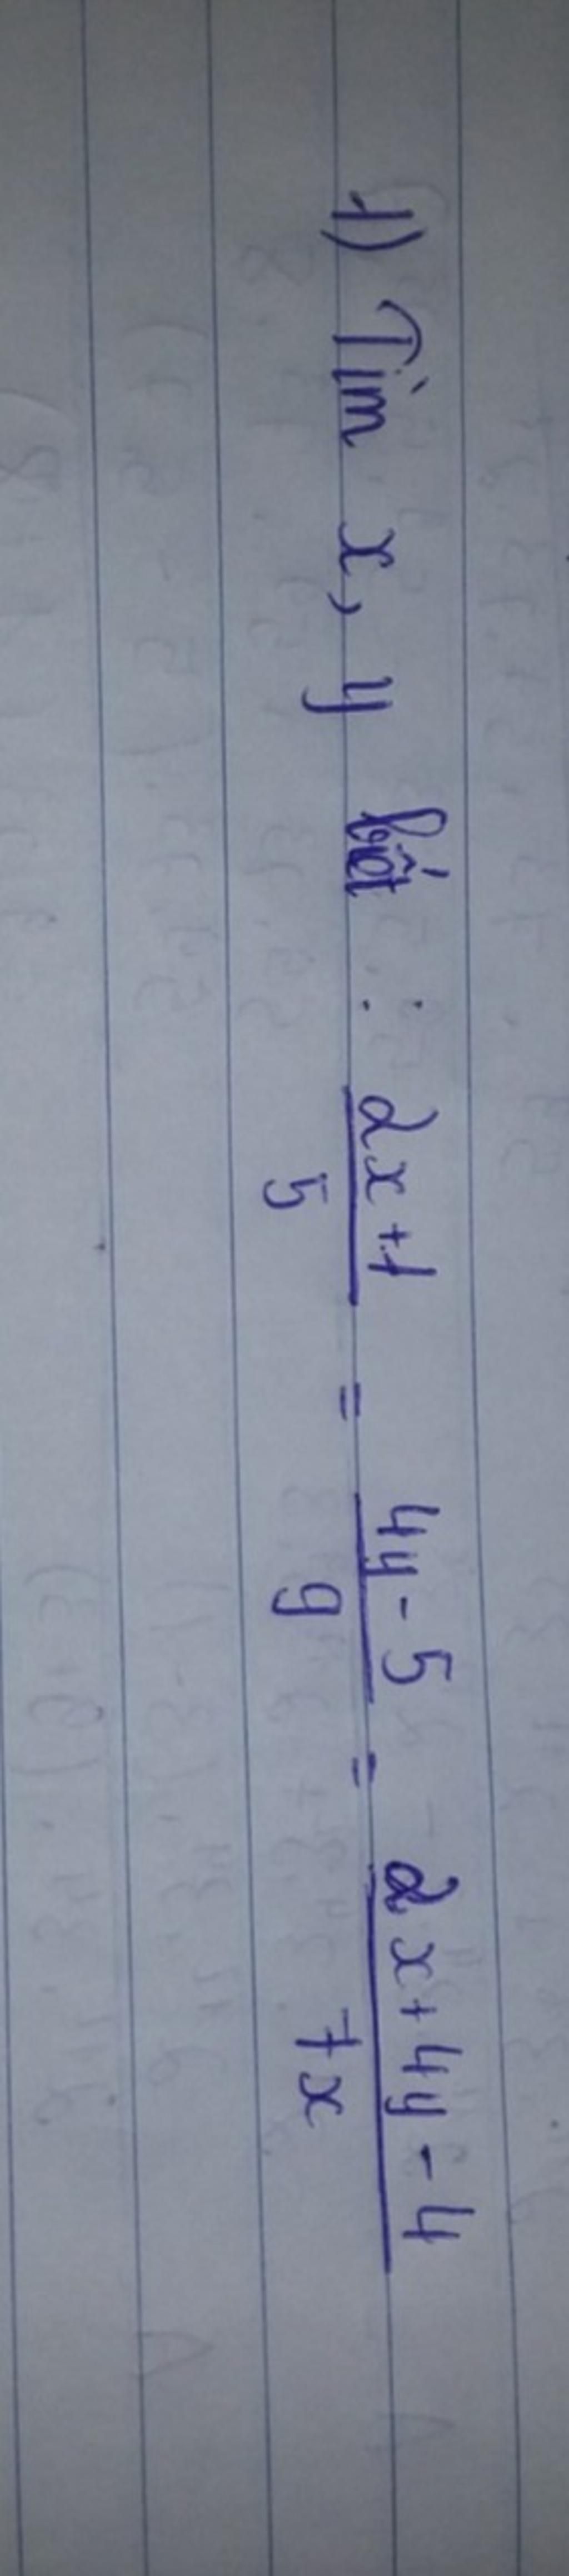 1) Tìm x, y biết : \frac{2x+1}{5} = \frac{4y-5}{9} = \frac{2x+4y-4}{7x}